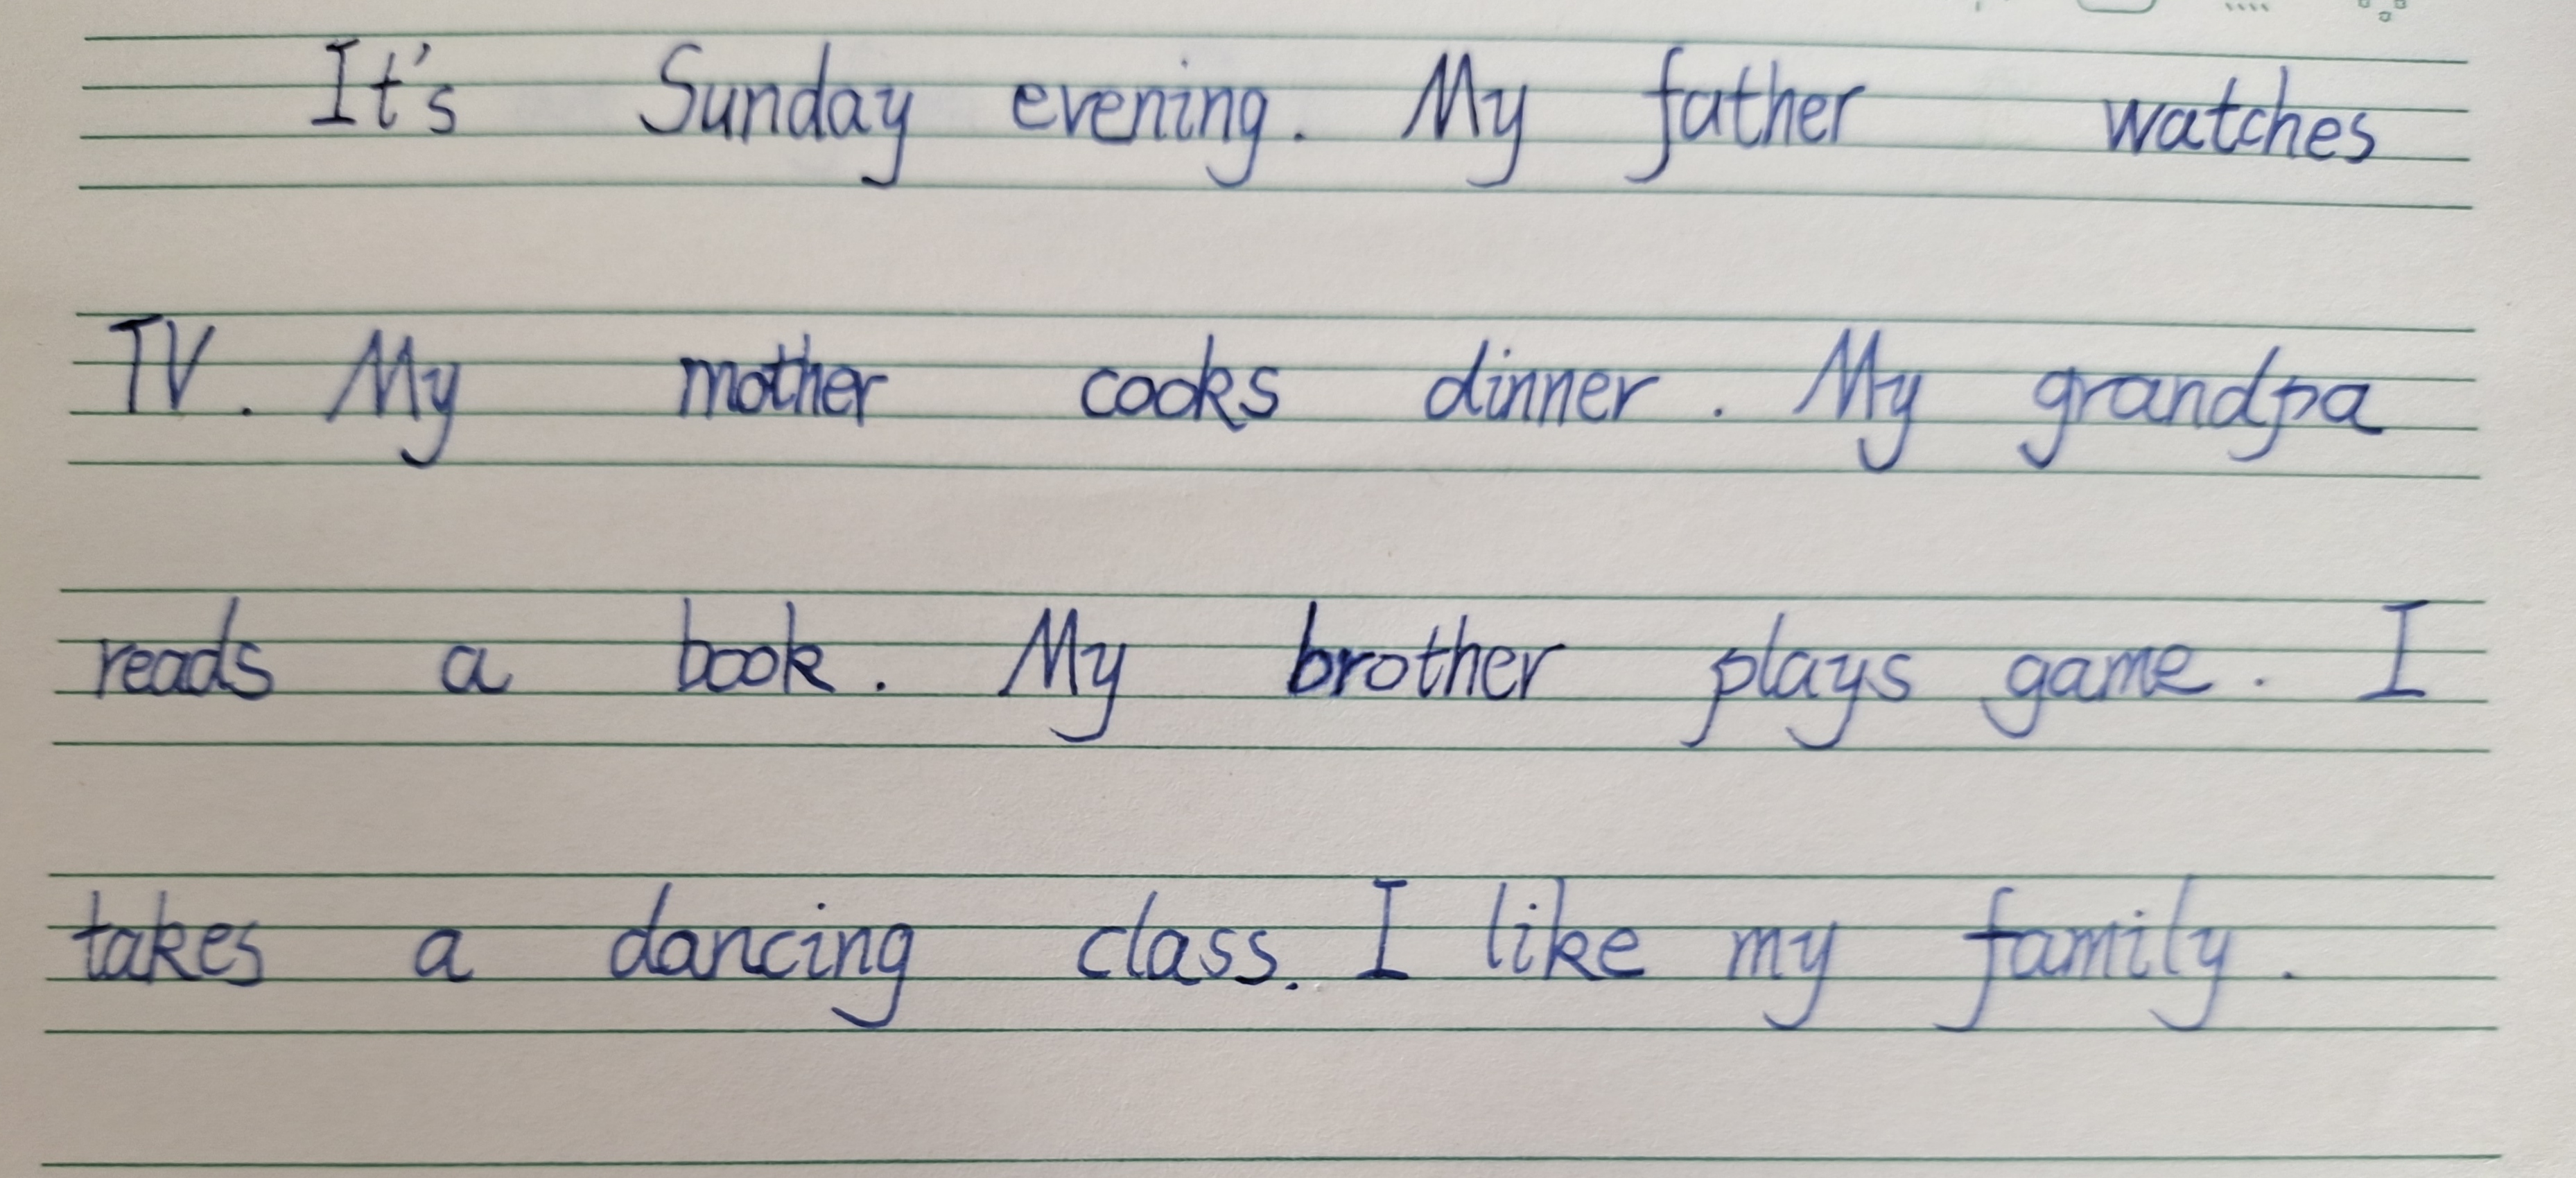 It's Sunday evening. My father watches
TV. My mother cooks dinner. My grandpa
reads a book. My brother plays game. I
takes a dancing class. I like my family.